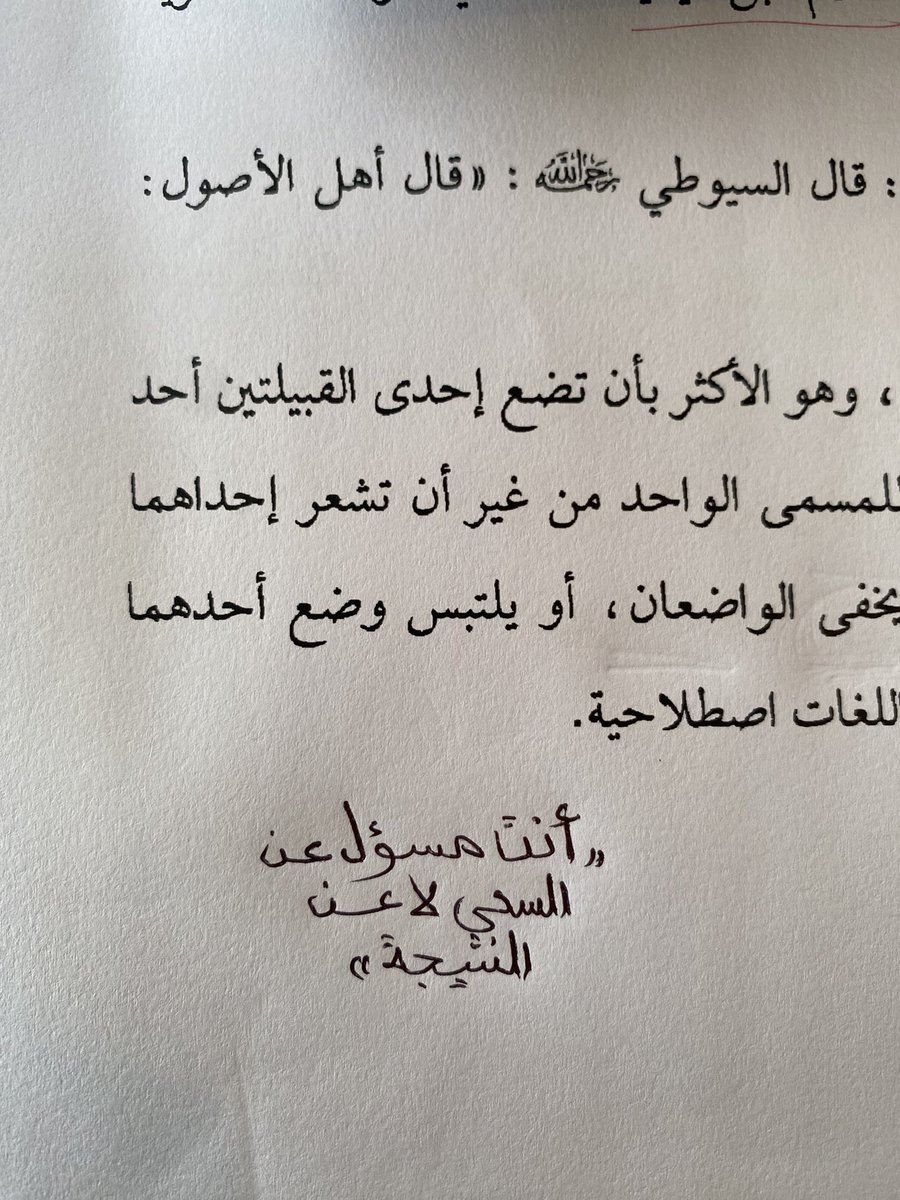 : قال السيوطي رحمه الله : «قال أهل الأصول:
، وهو الأكثر بأن تضع إحدى القبيلتين أحد
للمسمى الواحد من غير أن تشعر إحداهما
يخفى الواضعان، أو يلتبس وضع أحدهما
اللغات اصطلاحية.
«أنت مسؤل عن
السعي لا عن
النتيجة»